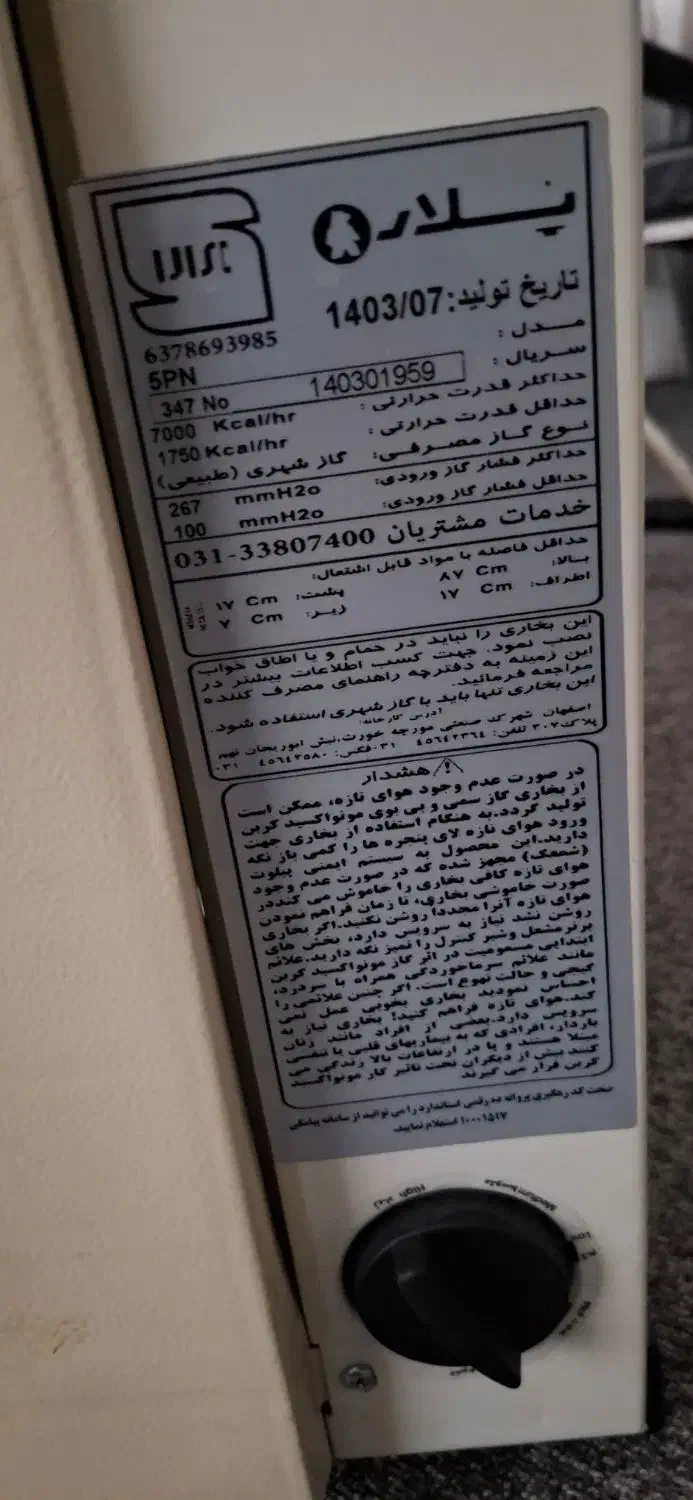 پلار
تاریخ تولید: 1403/07
6378693985
مدل: 5PN
سریال: 347 No 140301959
حداکثر قدرت حرارتی: 7000 Kcal/hr
حداقل قدرت حرارتی: 1750 Kcal/hr
نوع گاز مصرفی: گاز شهری (طبیعی)
حداکثر فشار گاز ورودی: 267 mmH2o
حداقل فشار گاز ورودی: 100 mmH2o
خدمات مشتریان 33807400-031
حداقل فاصله با مواد قابل اشتعال:
بالا: ۸۷ Cm پشت: ۱۷ Cm
اطراف: ۱۷ Cm زیر: ۷ Cm
این بخاری را نباید در حمام و یا اطاق خواب
نصب نمود. جهت کسب اطلاعات بیشتر در
این زمینه به دفترچه راهنمای مصرف کننده
مراجعه فرمائید.
این بخاری تنها باید با گاز شهری استفاده شود.
آدرس کارخانه:
اصفهان شهرک صنعتی مورچه خورت، نبش ابوریحان نهم
پلاک ۳۰۷ تلفن: ۴۵۶۴۲۳۶۴ ۰۳۱ فکس: ۴۵۶۴۲۵۸۰ ۰۳۱
هشدار
در صورت عدم وجود هوای تازه، ممکن است
از بخاری گاز سمی و بی بوی مونواکسید کربن
تولید گردد. به هنگام استفاده از بخاری جهت
ورود هوای تازه لای پنجره ها را کمی باز نگه
دارید. این محصول به سیستم ایمنی پیلوت
(شمعک) مجهز شده که در صورت عدم وجود
هوای تازه کافی بخاری را خاموش می کند. در
صورت خاموشی بخاری، تا زمان فراهم نمودن
هوای تازه آنرا مجددا روشن نکنید. اگر بخاری
روشن نشد نیاز به سرویس دارد، بخش های
برنر مشعل و شیر کنترل را تمیز نگه دارید. علائم
ابتدایی مسمومیت در اثر گاز مونواکسید کربن
مانند علائم سرماخوردگی همراه با سردرد،
گیجی و حالت تهوع است. اگر چنین علائمی را
احساس نمودید بخاری بخوبی عمل نمی
کند. هوای تازه فراهم کنید! بخاری نیاز به
سرویس دارد. بعضی از افراد مانند زنان
باردار، افرادی که به بیماریهای قلبی یا تنفسی
مبتلا هستند و یا در ارتفاعات بالا زندگی می
کنند بیش از دیگران تحت تاثیر گاز مونواکسید
کربن قرار می گیرند
صحت کد رهگیری پروانه ده رقمی استاندارد را می توانید از سامانه پیامکی
۱۰۰۰۱۵۱۷ استعلام نمایید.
زیاد High
متوسط Medium
Low